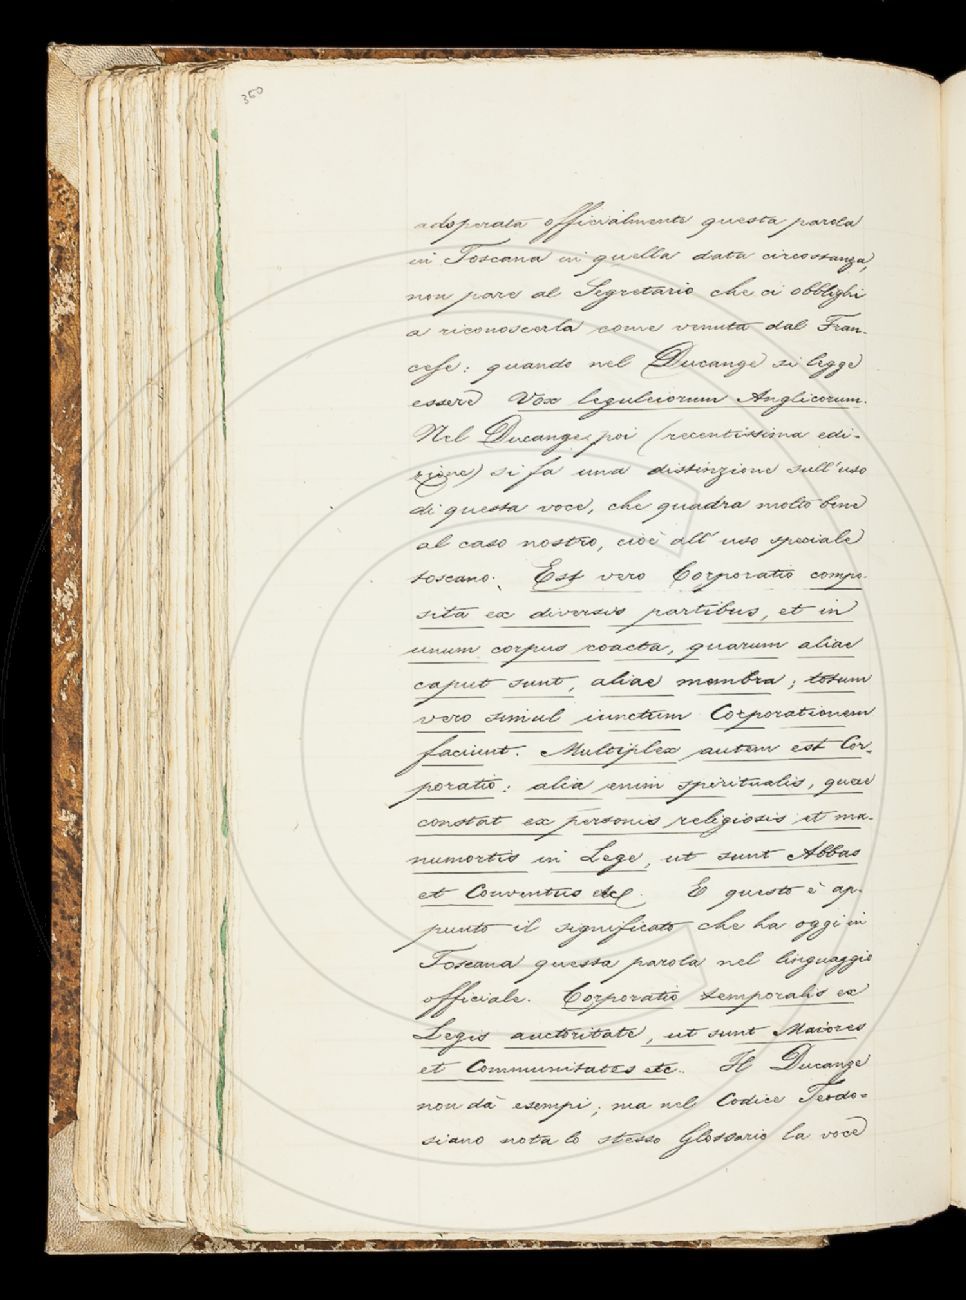 360
adoperata officialmente questa parola
in Toscana in quella data circostanza,
non pare al Segretario che ci obblighi
a riconoscerla come venuta dal Fran-
cese: quando nel Ducange si legge
essere Vox leguleiorum Anglicorum.
Nel Ducange poi (recentissima edi-
zione) si fa una distinzione sull'uso
di questa voce, che quadra molto bene
al caso nostro, cioè all'uso speciale
toscano. Est vero Corporatio compo-
sita ex diversis partibus, et in
unum corpus coacta, quarum aliae
caput sunt, aliae membra; totum
vero simul iunctum Corporationem
faciunt. Multiplex autem est Cor-
poratio: alia enim spiritualis, quae
constat ex personis religiosis et ma-
numortis in Lege, ut sunt Abbas
et Conventus etc. E questo è ap-
punto il significato che ha oggi in
Toscana questa parola nel linguaggio
officiale. Corporatio temporalis ex
Legis auctoritate, ut sunt Maiores
et Communitates etc. Il Ducange
non dà esempi; ma nel Codice Teodo-
siano nota lo stesso Glossario la voce